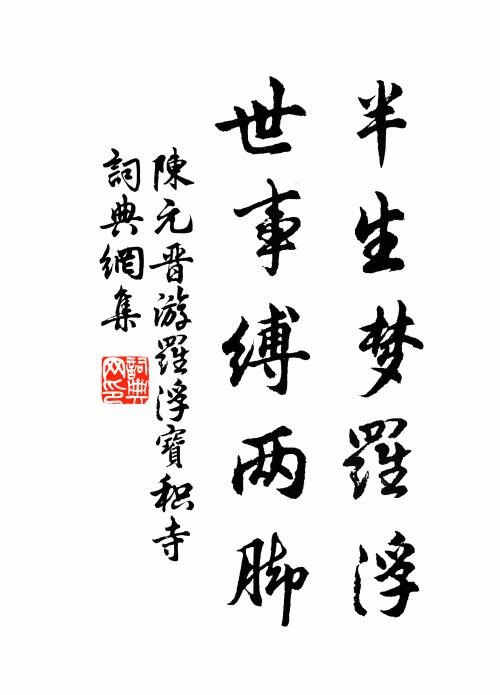 半生梦羅浮
世事缚两脚
陳元晋游羅浮寶积寺
詞典網集
詞典網印